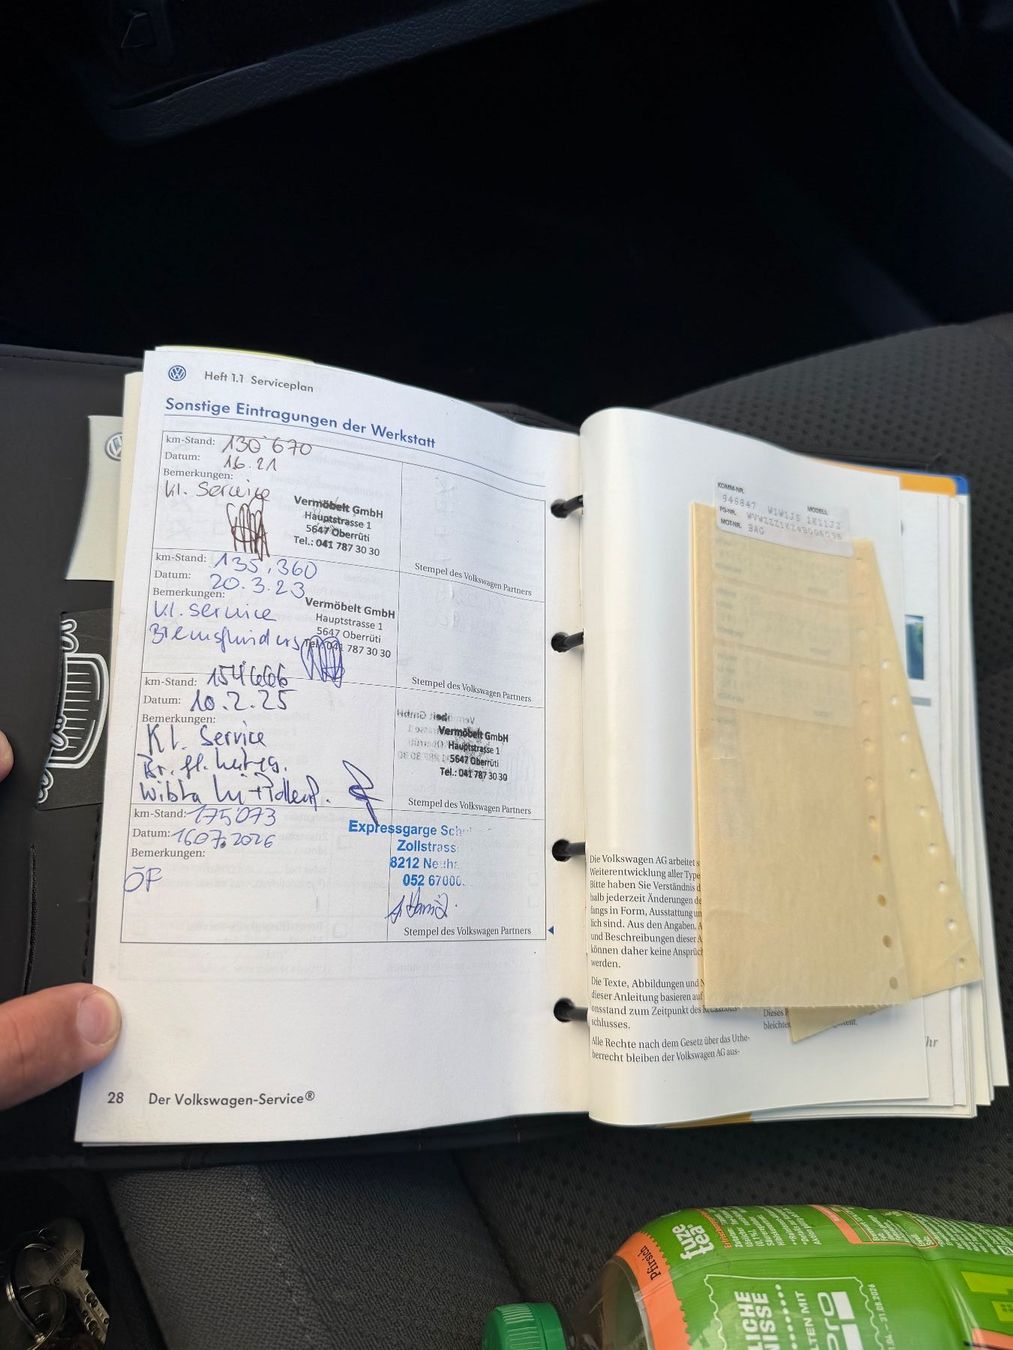 Heft 1.1 Serviceplan
Sonstige Eintragungen der Werkstatt
km-Stand: 130'670
Datum: 16.21
Bemerkungen:
Kl. Service
Vermöbelt GmbH
Hauptstrasse 1
5647 Oberrüti
Tel.: 041 787 30 30
Stempel des Volkswagen Partners
km-Stand: 135.360
Datum: 20.3.23
Bemerkungen:
Kl. Service
Vermöbelt GmbH
Hauptstrasse 1
5647 Oberrüti
Tel.: 041 787 30 30
Stempel des Volkswagen Partners
km-Stand:
Datum: 10.2.25
Bemerkungen:
Kl. Service
Vermöbelt GmbH
Hauptstrasse 1
5647 Oberrüti
Tel.: 041 787 30 30
Stempel des Volkswagen Partners
km-Stand: 175073
Datum: 16.07.2026
Bemerkungen:
ÖF
Expressgarge
Zollstrass
8212
052 67000
Stempel des Volkswagen Partners
28 Der Volkswagen-Service®
KOMM-NR. MODELL
PS-NR.
MOT-NR. BAG
Die Volkswagen AG arbeitet
Weiterentwicklung aller Type
Bitte haben Sie Verständnis
halb jederzeit Änderungen de
langs in Form, Ausstattung
lich sind. Aus den Angaben,
und Beschreibungen dieser
können daher keine Ansprüc
werden.
Die Texte, Abbildungen und
dieser Anleitung basieren auf
onsstand zum Zeitpunkt des
schlusses.
Alle Rechte nach dem Gesetz über das Urhe-
berrecht bleiben der Volkswagen AG aus-
fuze
tea
Pfirsich
LICHE
NISSE
LTEN MIT
pro